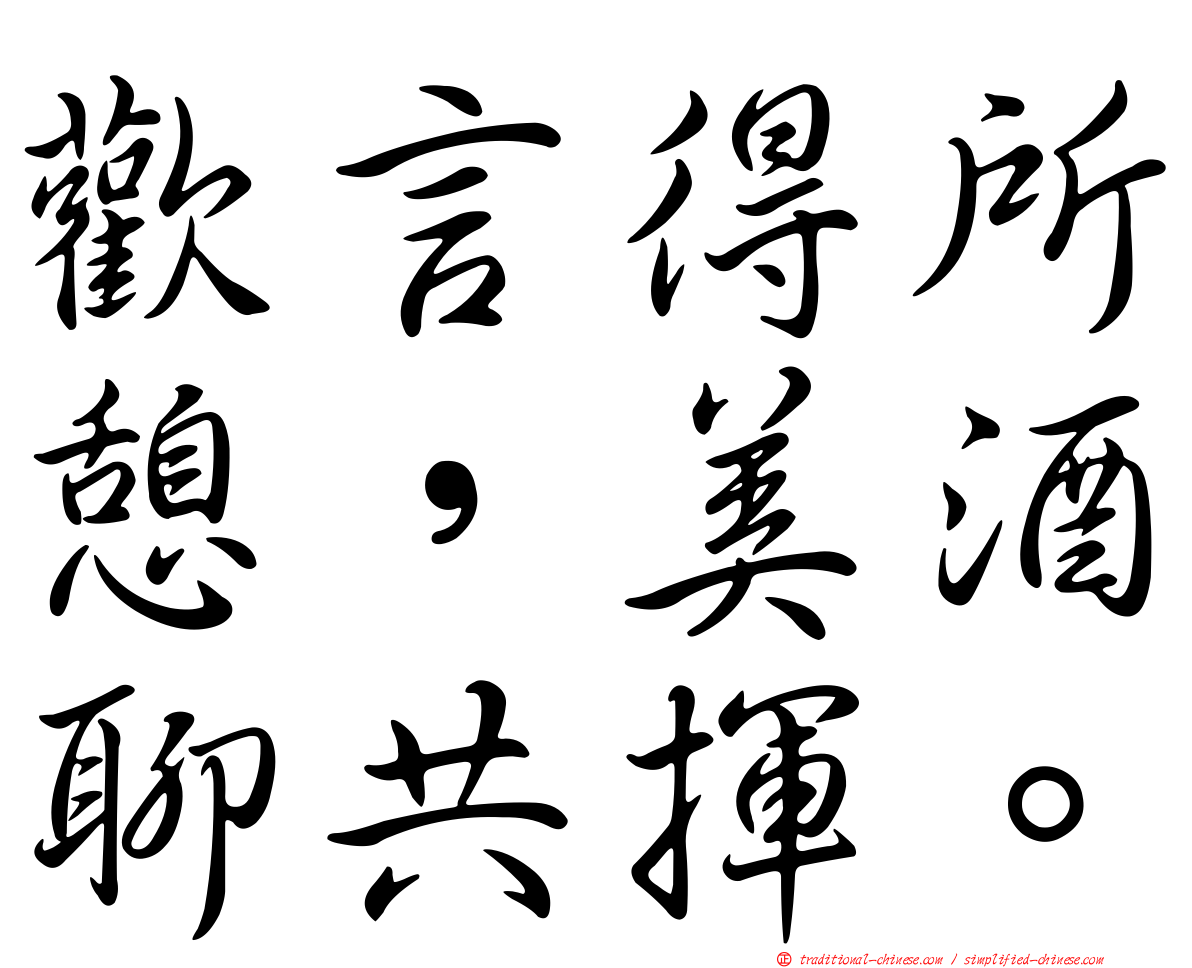 歡言得所
憩，美酒
聊共揮。
正 traditional-chinese.com / simplified-chinese.com